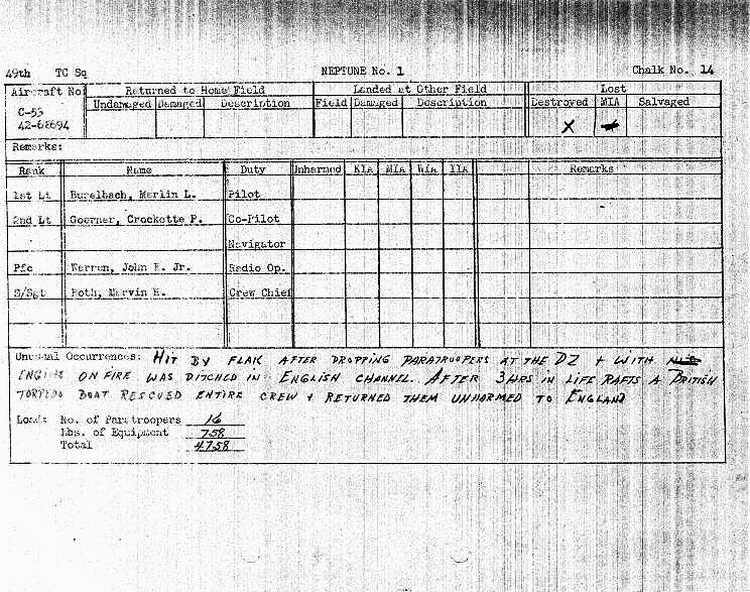 49th TC Sq NEPTUNE No. 1 Chalk No. 14
Aircraft No Returned to Home Field Landed at Other Field Lost
Undamaged Damaged Description Field Damaged Description Destroyed MIA Salvaged
C-53
42-68694 X
Remarks:
Rank Name Duty Unharmed KIA MIA WIA IIA Remarks
1st Lt Burelbach, Merlin L. Pilot
2nd Lt Goerner, Crockette P. Co-Pilot
Navigator
Pfc Warren, John E. Jr. Radio Op.
S/Sgt Roth, Marvin H. Crew Chief
Unusual Occurrences: HIT BY FLAK AFTER DROPPING PARATROOPERS AT THE DZ + WITH
ENGINE ON FIRE WAS DITCHED IN ENGLISH CHANNEL. AFTER 3 HRS IN LIFE RAFTS A BRITISH
TORPEDO BOAT RESCUED ENTIRE CREW + RETURNED THEM UNHARMED TO ENGLAND
Load: No. of Paratroopers 16
Lbs. of Equipment 758
Total 4758